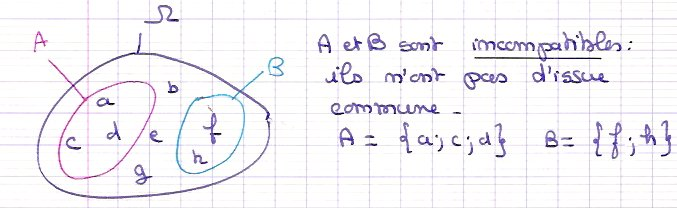 Ω
A
B
a
b
c
d
e
f
g
h
A et B sont incompatibles :
ils n'ont pas d'issue
commune.
A = {a; c; d} B = {f; h}